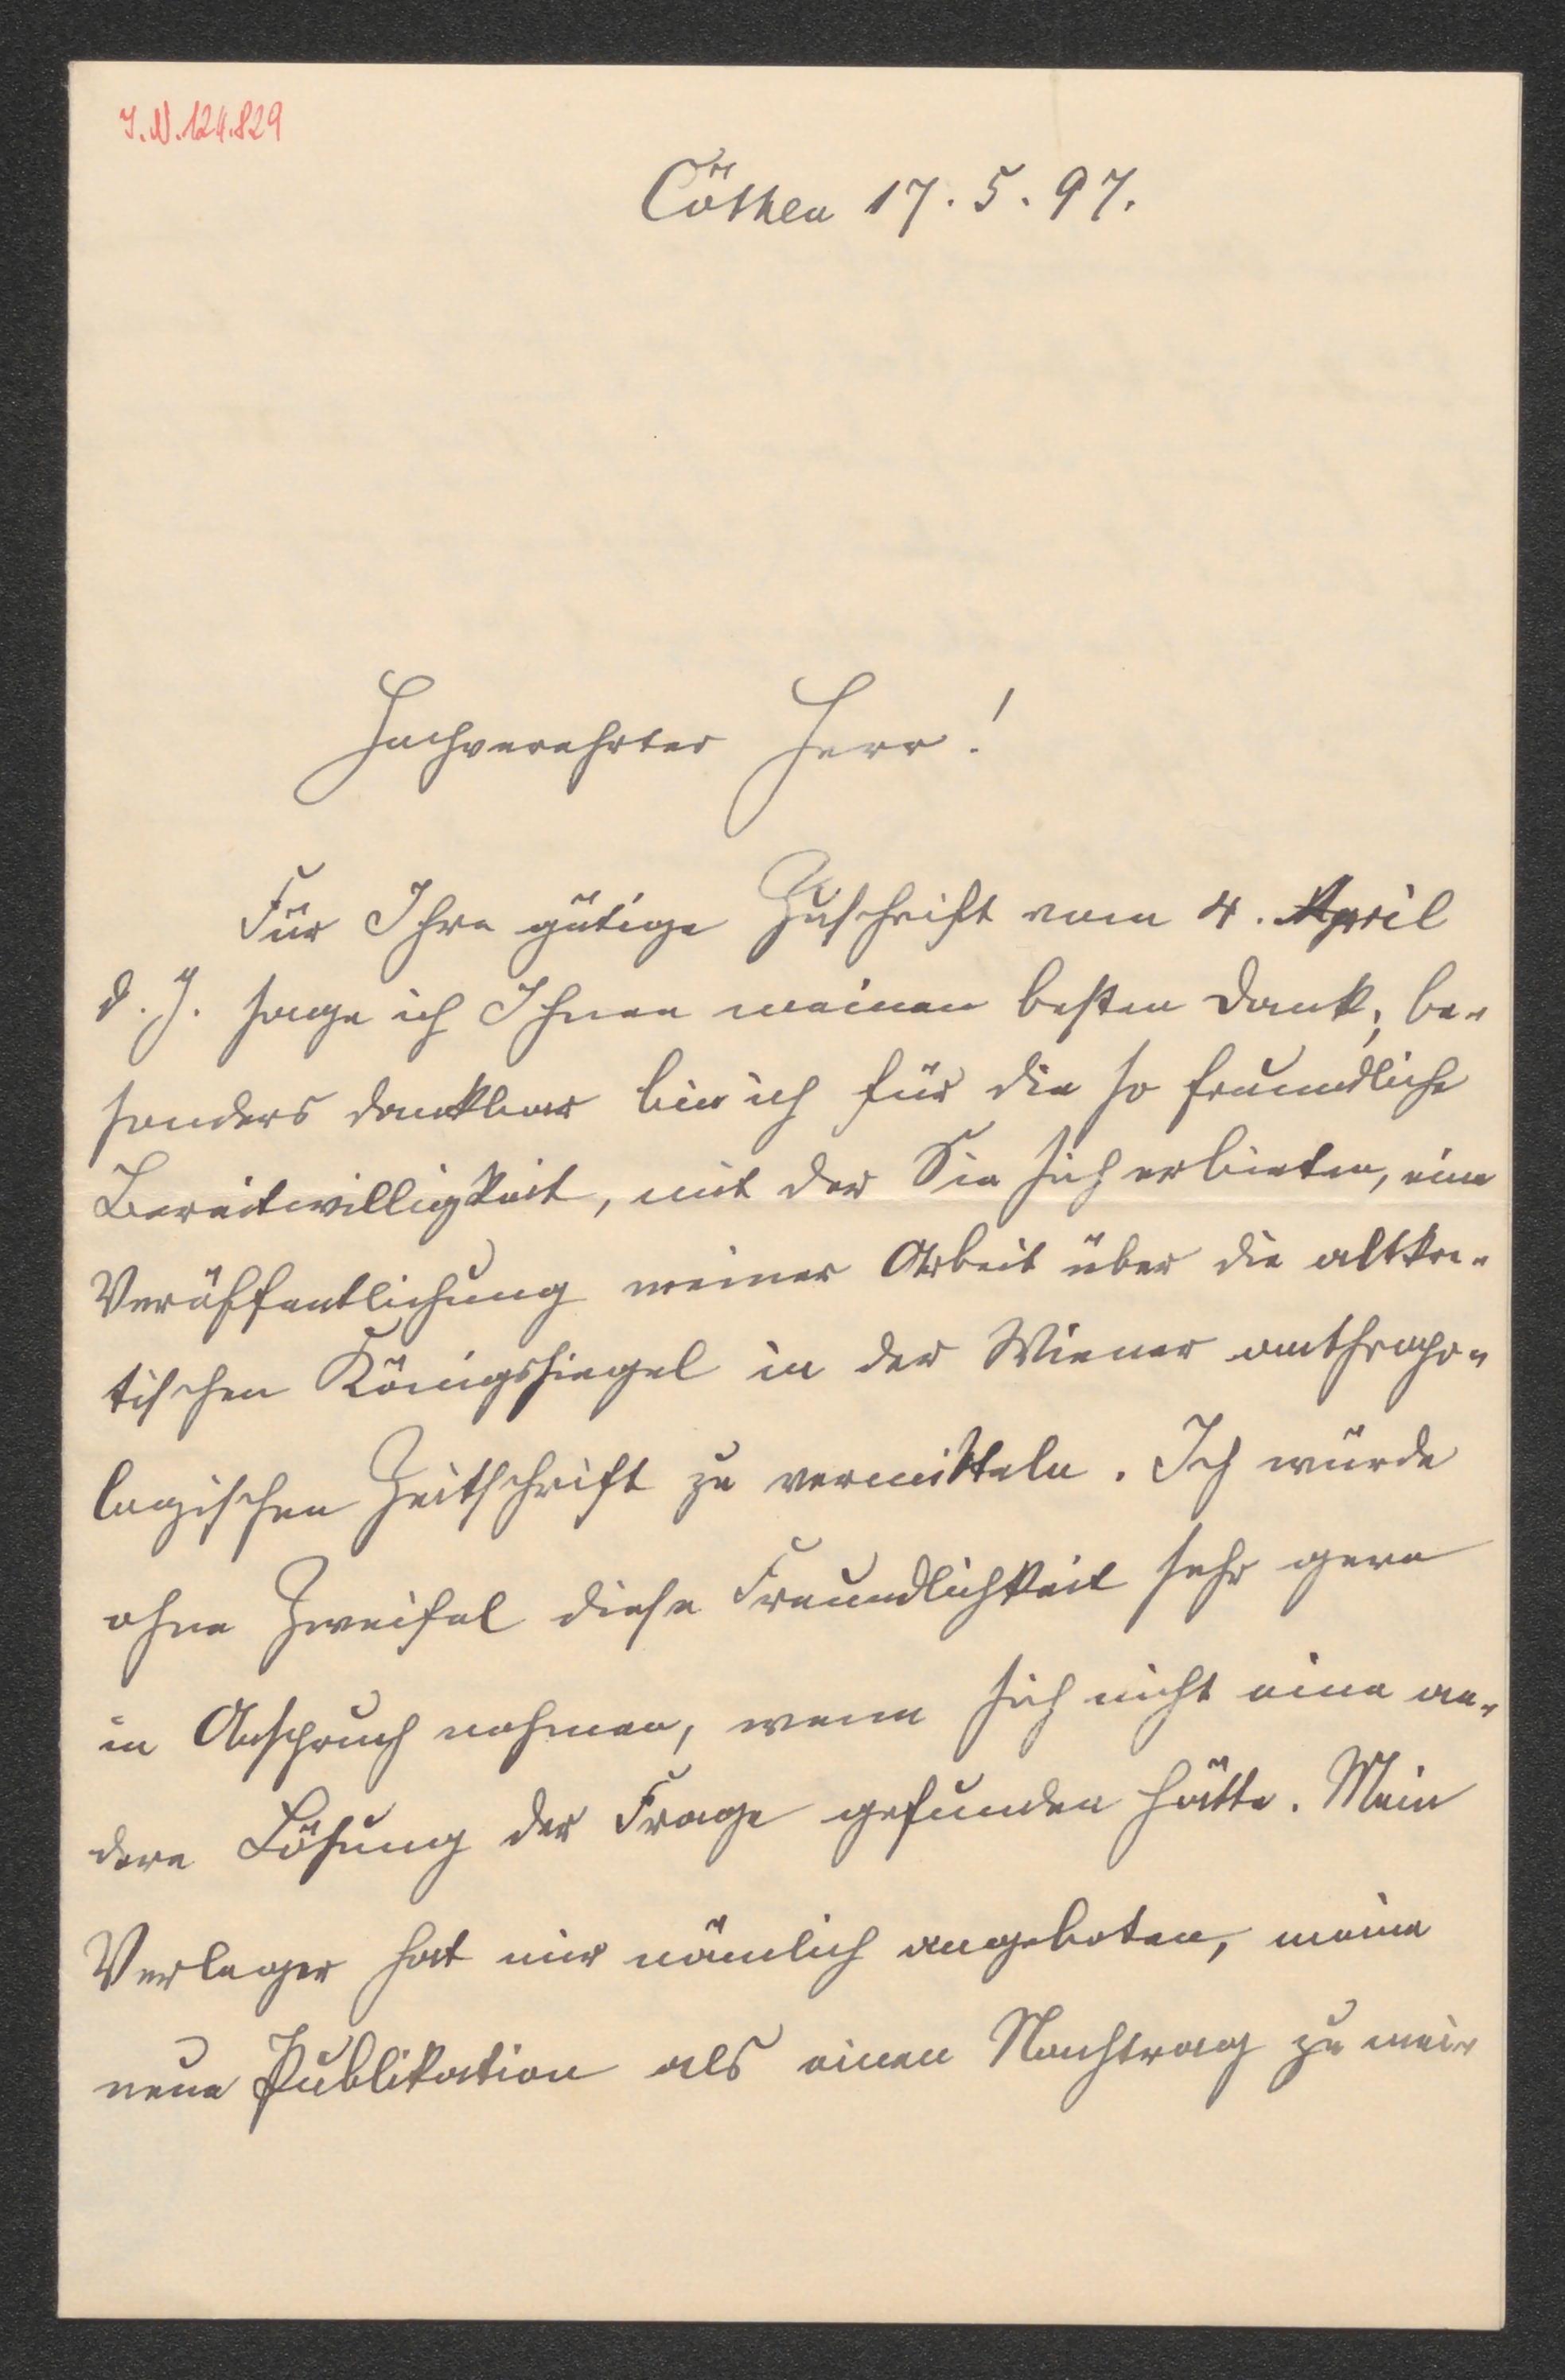 J.N.124.829
Cöthen 17.5.97.
Hochverehrter Herr!
Für Ihre gütige Zuschrift vom 4. April
d. J. sage ich Ihnen meinen besten Dank; be-
sonders dankbar bin ich für die so freundliche
Bereitwilligkeit, mit der Sie sich erbieten, eine
Veröffentlichung meiner Arbeit über die altkre-
tischen Königssiegel in der Wiener anthropo-
logischen Zeitschrift zu vermitteln. Ich würde
ohne Zweifel diese Freundlichkeit sehr gern
in Anspruch nehmen, wenn sich nicht eine an-
dere Lösung der Frage gefunden hätte. Mein
Verleger hat mir nämlich angeboten, meine
neue Publikation als einen Nachtrag zu mei-